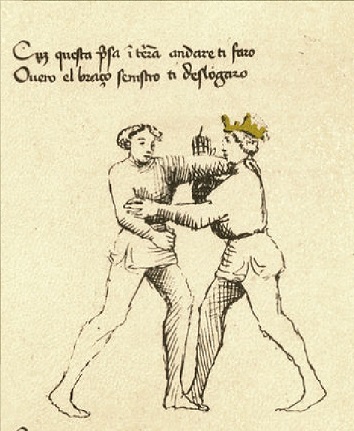 Cum questa presa in terra andare ti faro
Overo el braço senistro ti deslogaro